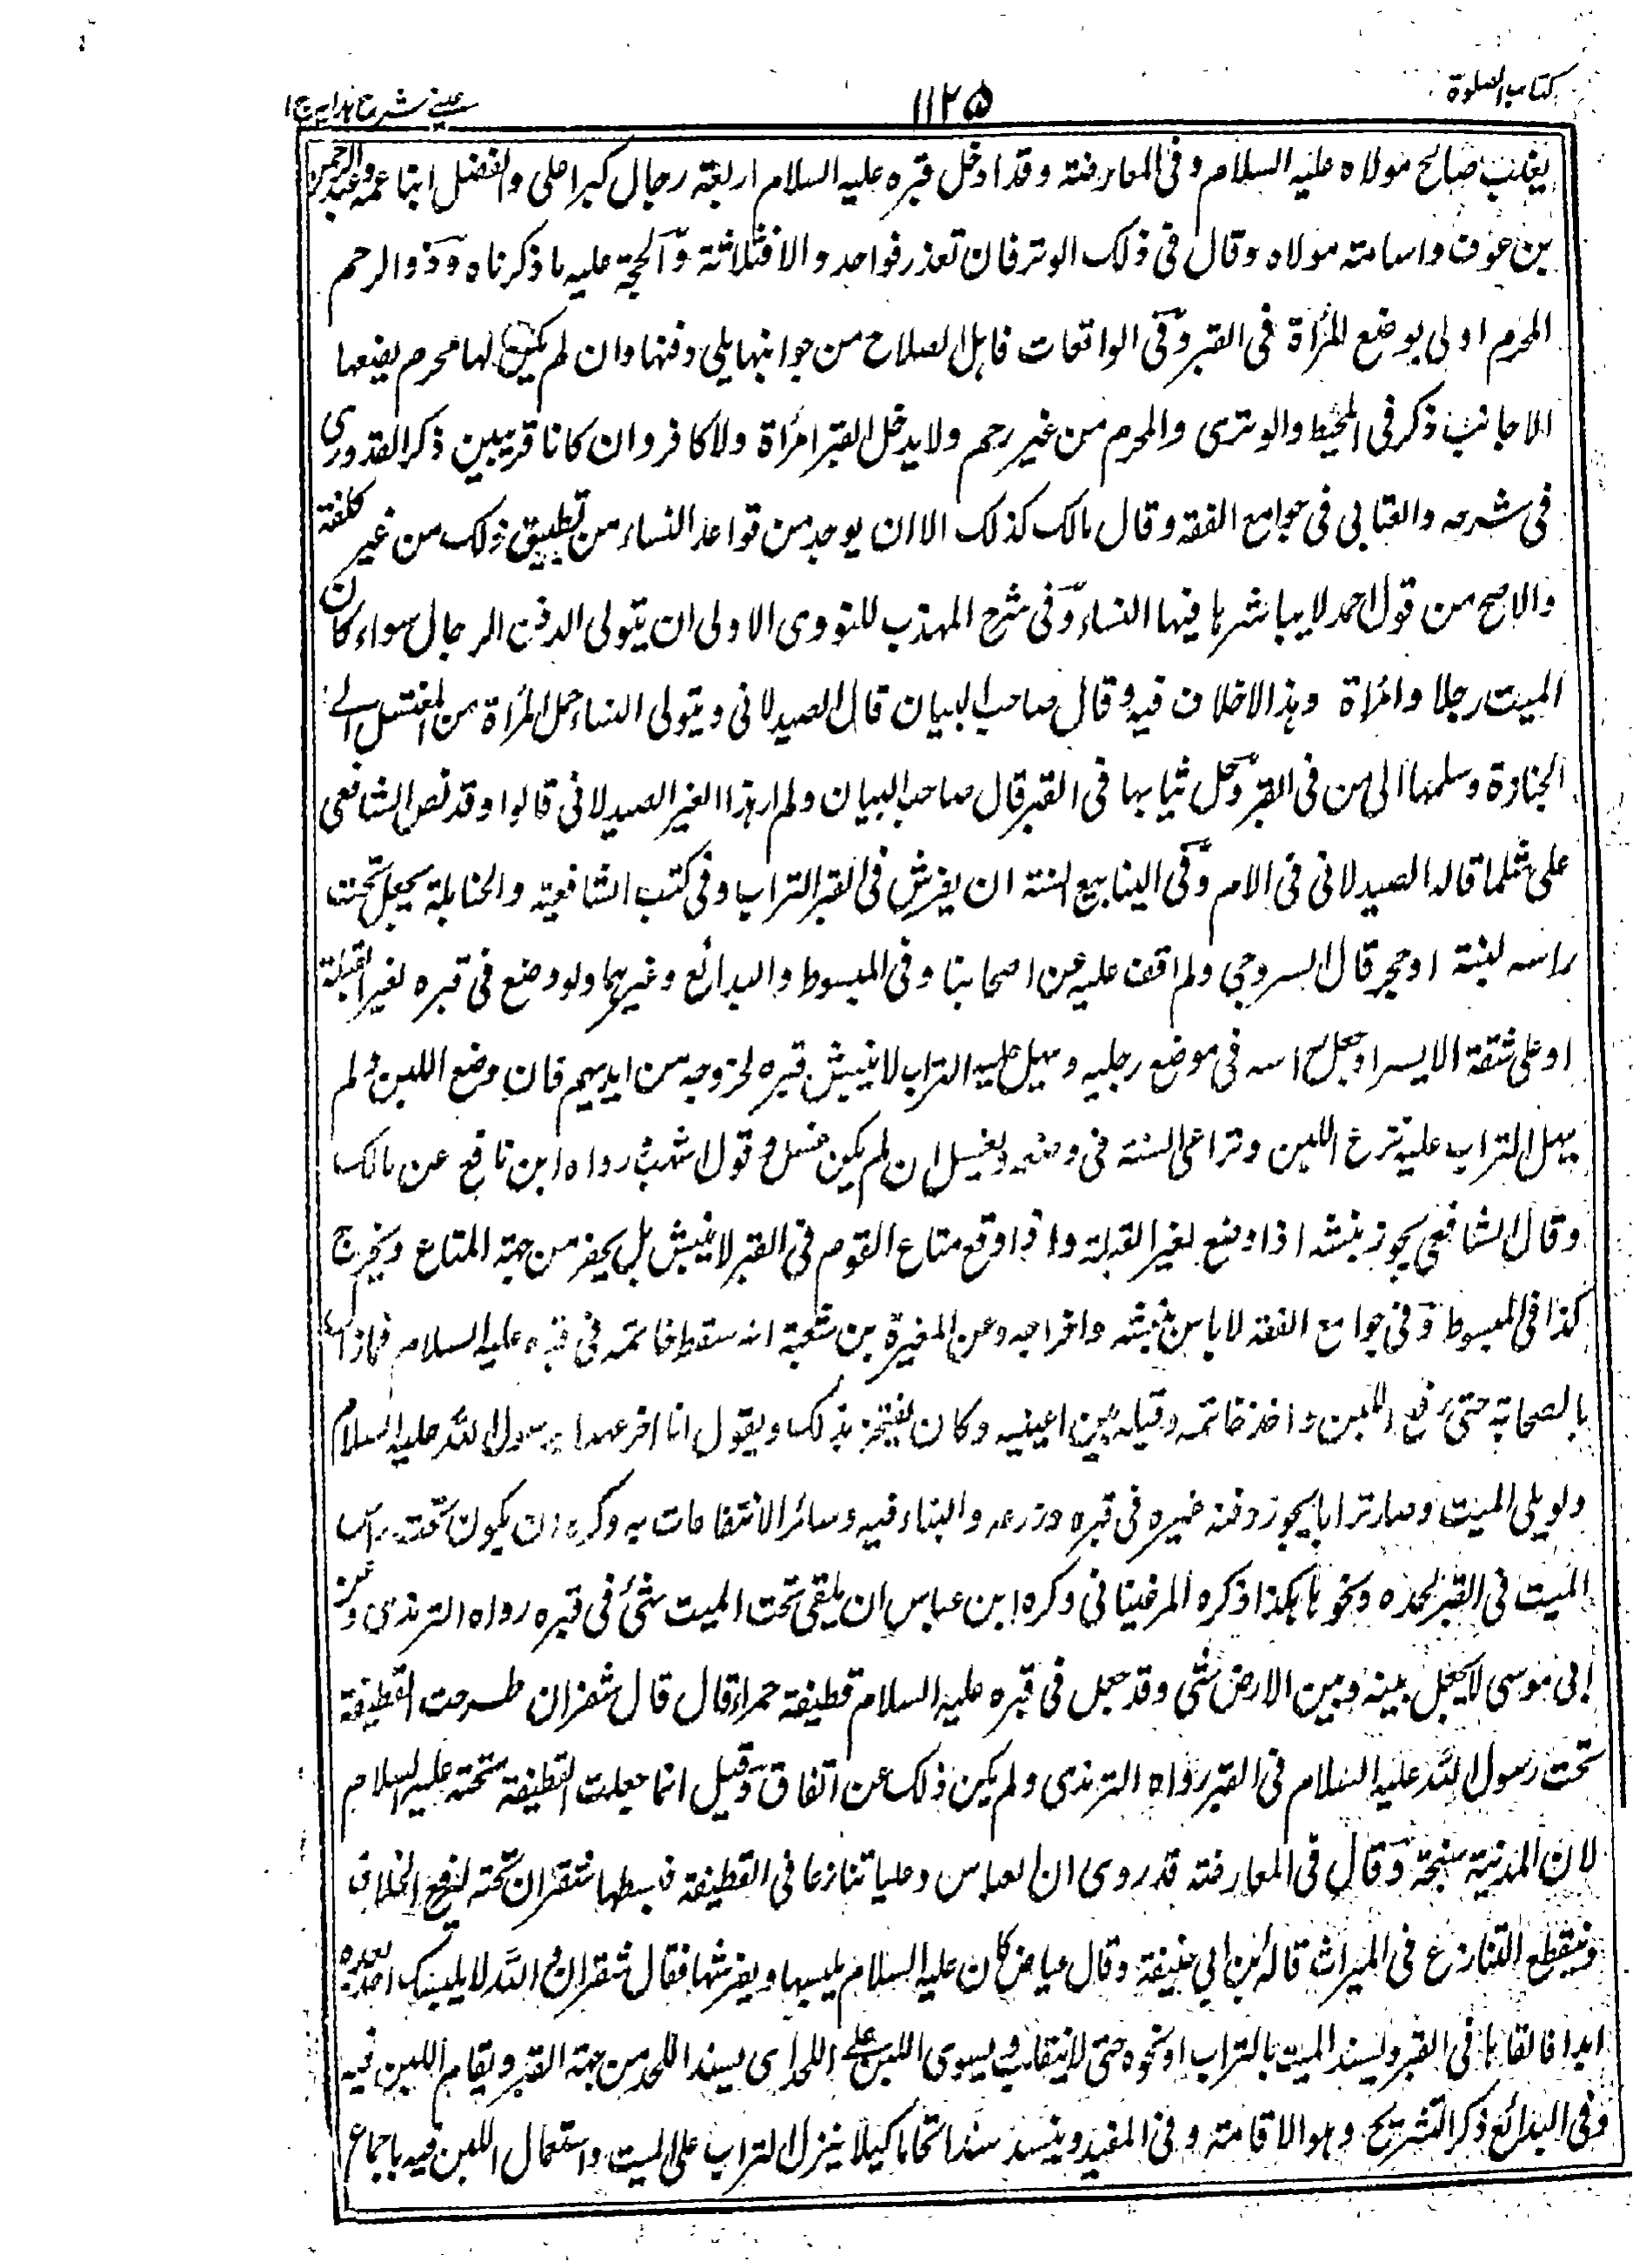 كتاب الصلوة
١١٢٥
عيني شرح هدايه ج١
يغلب صالح مولاه عليه السلام وفي المعارفة وقد ادخل قبره عليه السلام اربعة رجال كبراء على والفضل ابنا عمه وعبد الرحمن
بن عوف واسامة مولاه وقال في ذلك الوتر فان تعذر فواحد والا فثلاثة والحجة عليه ما ذكرناه وذو الرحم
المحرم اولى بوضع المرأة في القبر وفي الواقعات فاهل الصلاح من جوانبها يلي دفنها وان لم يكن لها محرم يضعها
الاجانب ذكر في المحيط والوترى والمحرم من غير رحم ولا يدخل القبر امرأة ولا كافر وان كانا قريبين ذكر القدورى
في شرحه والعتابى في جوامع الفقه وقال مالك كذلك الا ان يوجد من قواعد النساء من تطبيق ذلك من غير كلفة
والاصح من قول احمد لا يباشرها فيها النساء وفي شرح المهذب للنووى الاولى ان يتولى الدفن الرجال سواء كان
الميت رجلا وامرأة وهذا لاخلاف فيه وقال صاحب البيان قال الصيدلانى ويتولى النساء حمل المرأة من المغتسل الى
الجنازة وسلمها الى من في القبر وحل ثيابها في القبر قال صاحب البيان ولم ار هذا لغير الصيدلانى قالوا وقد نص الشافعى
على مثلما قاله الصيدلانى في الام وفي الينابيع السنة ان يفرش في القبر التراب وفي كتب الشافعية والحنابلة يجعل تحت
راسه لبنة او حجر قال السروجى ولم اقف عليه عن اصحابنا وفي المبسوط والبدائع وغيرهما ولو وضع في قبره لغير القبلة
او على شقة الايسر او جعل راسه في موضع رجليه وهيل عليه التراب لا ينبش قبره لخروجه من ايديهم فان وضع اللبن ولم
يهل التراب عليه نزع اللبن وتراعى السنة في وضعه ويغسل ان لم يكن غسل وقول اشهب رواه ابن نافع عن مالك
وقال الشافعى يجوز نبشه اذا وضع لغير القبلة واذا وقع متاع القوم في القبر لا ينبش بل يحفر من جهة المتاع ويخرج
كذا في المبسوط وفي جوامع الفقه لا باس بنبشه واخراجه وعن المغيرة بن شعبة انه سقط خاتمه في قبره عليه السلام فما زال
بالصحابة حتى رفع اللبن واخذ خاتمه وقبله بين اعينيه وكان يفتخر بذلك ويقول انا اخر عهدا برسول الله عليه السلام
ولو بلى الميت وصار ترابا يجوز دفنه غيره في قبره وزرعه والبناء فيه وسائر الانتفاعات به وكره ان يكون تحت راس
الميت في القبر مخدة ونحوها هكذا ذكره المرغينانى وكره ابن عباس ان يلقى تحت الميت شئ في قبره رواه الترمذى وعن
ابى موسى لا يجعل بينه وبين الارض شئ وقد جعل في قبره عليه السلام قطيفة حمراء قال قال شقران طرحت القطيفة
تحت رسول الله عليه السلام في القبر رواه الترمذى ولم يكن ذلك عن اتفاق وقيل انما جعلت القطيفة تحته عليه السلام
لان المدينة سبخة وقال في المعارفة قد روى ان العباس وعليا تنازعا في القطيفة فبسطها شقران تحته ليرفع الخلاف
وينقطع التنازع في الميراث قاله ابن ابى خيثمة وقال عياض كان عليه السلام يلبسها ويفرشها فقال شقران والله لا يلبسك احد بعده
ابدا فالقاها في القبر وليسند الميت بالتراب او نحوه حتى لا ينقلب ويسوى اللبن على اللحد اى يسد اللحد من جهة القبر ويقام اللبن فيه
وفي البدائع ذكر التشريح وهو الاقامة وفي المفيد وينسد سدا تحاما كيلا ينزل التراب على الميت واستعمال اللبن فيه باجماع